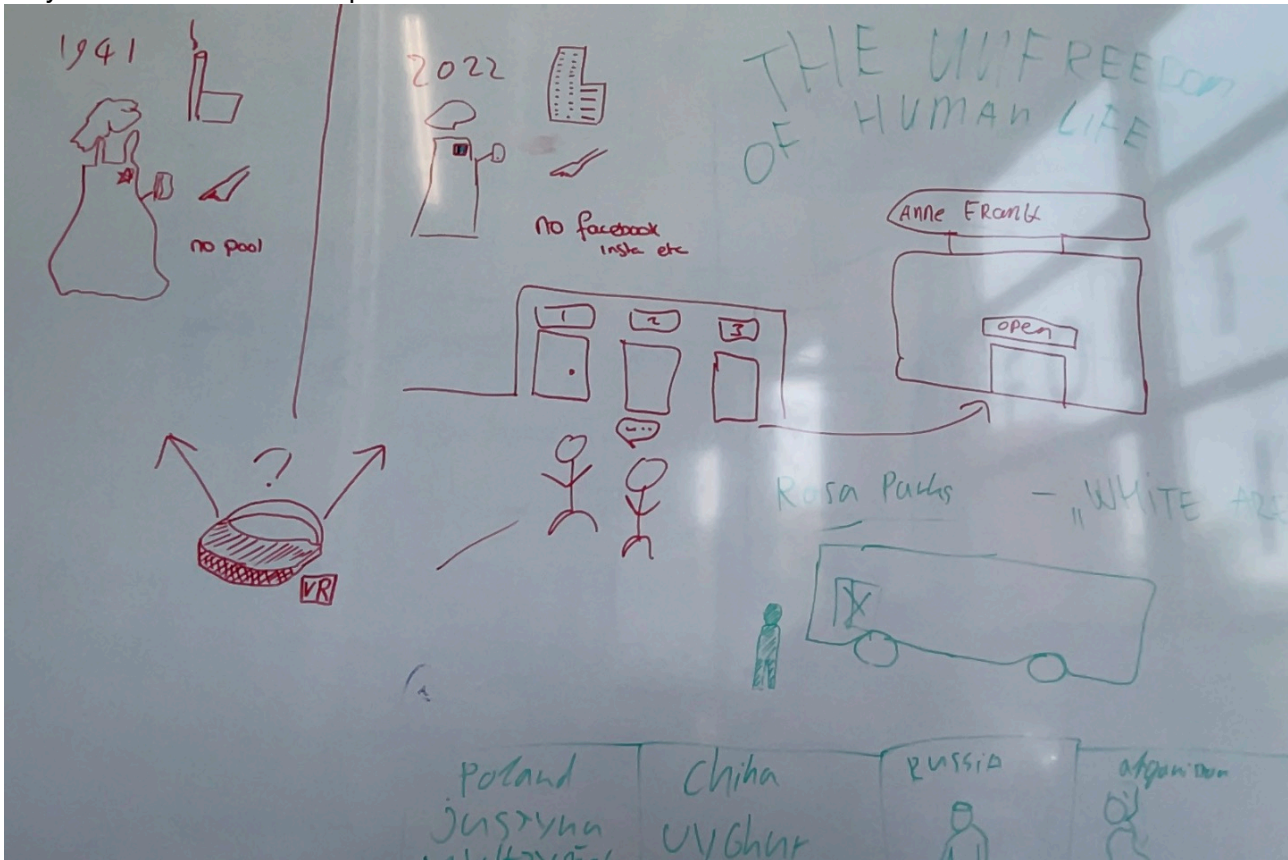 1941
no pool
2022
no facebook
insta etc
THE UNFREEDom
OF HUMAN LIFE
Anne FRank
open
1
2
3
?
VR
Rosa Parks — „WHITE
Poland
justyna
China
UYGhur
RUSSIA